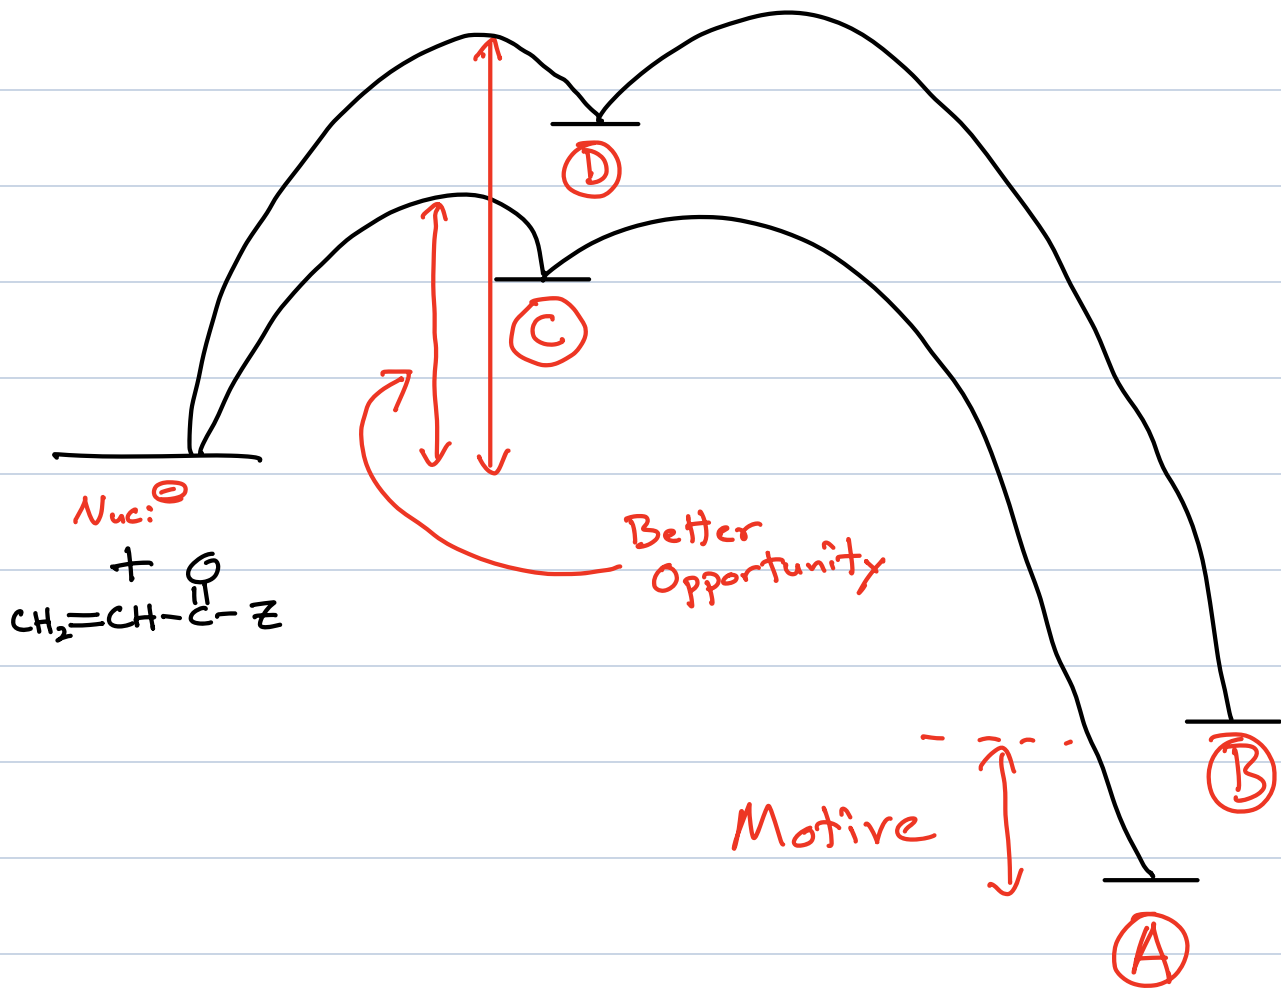 D
C
Nuc:⊖
+
O
CH₂=CH-C-Z
Better
Opportunity
Motive
B
A